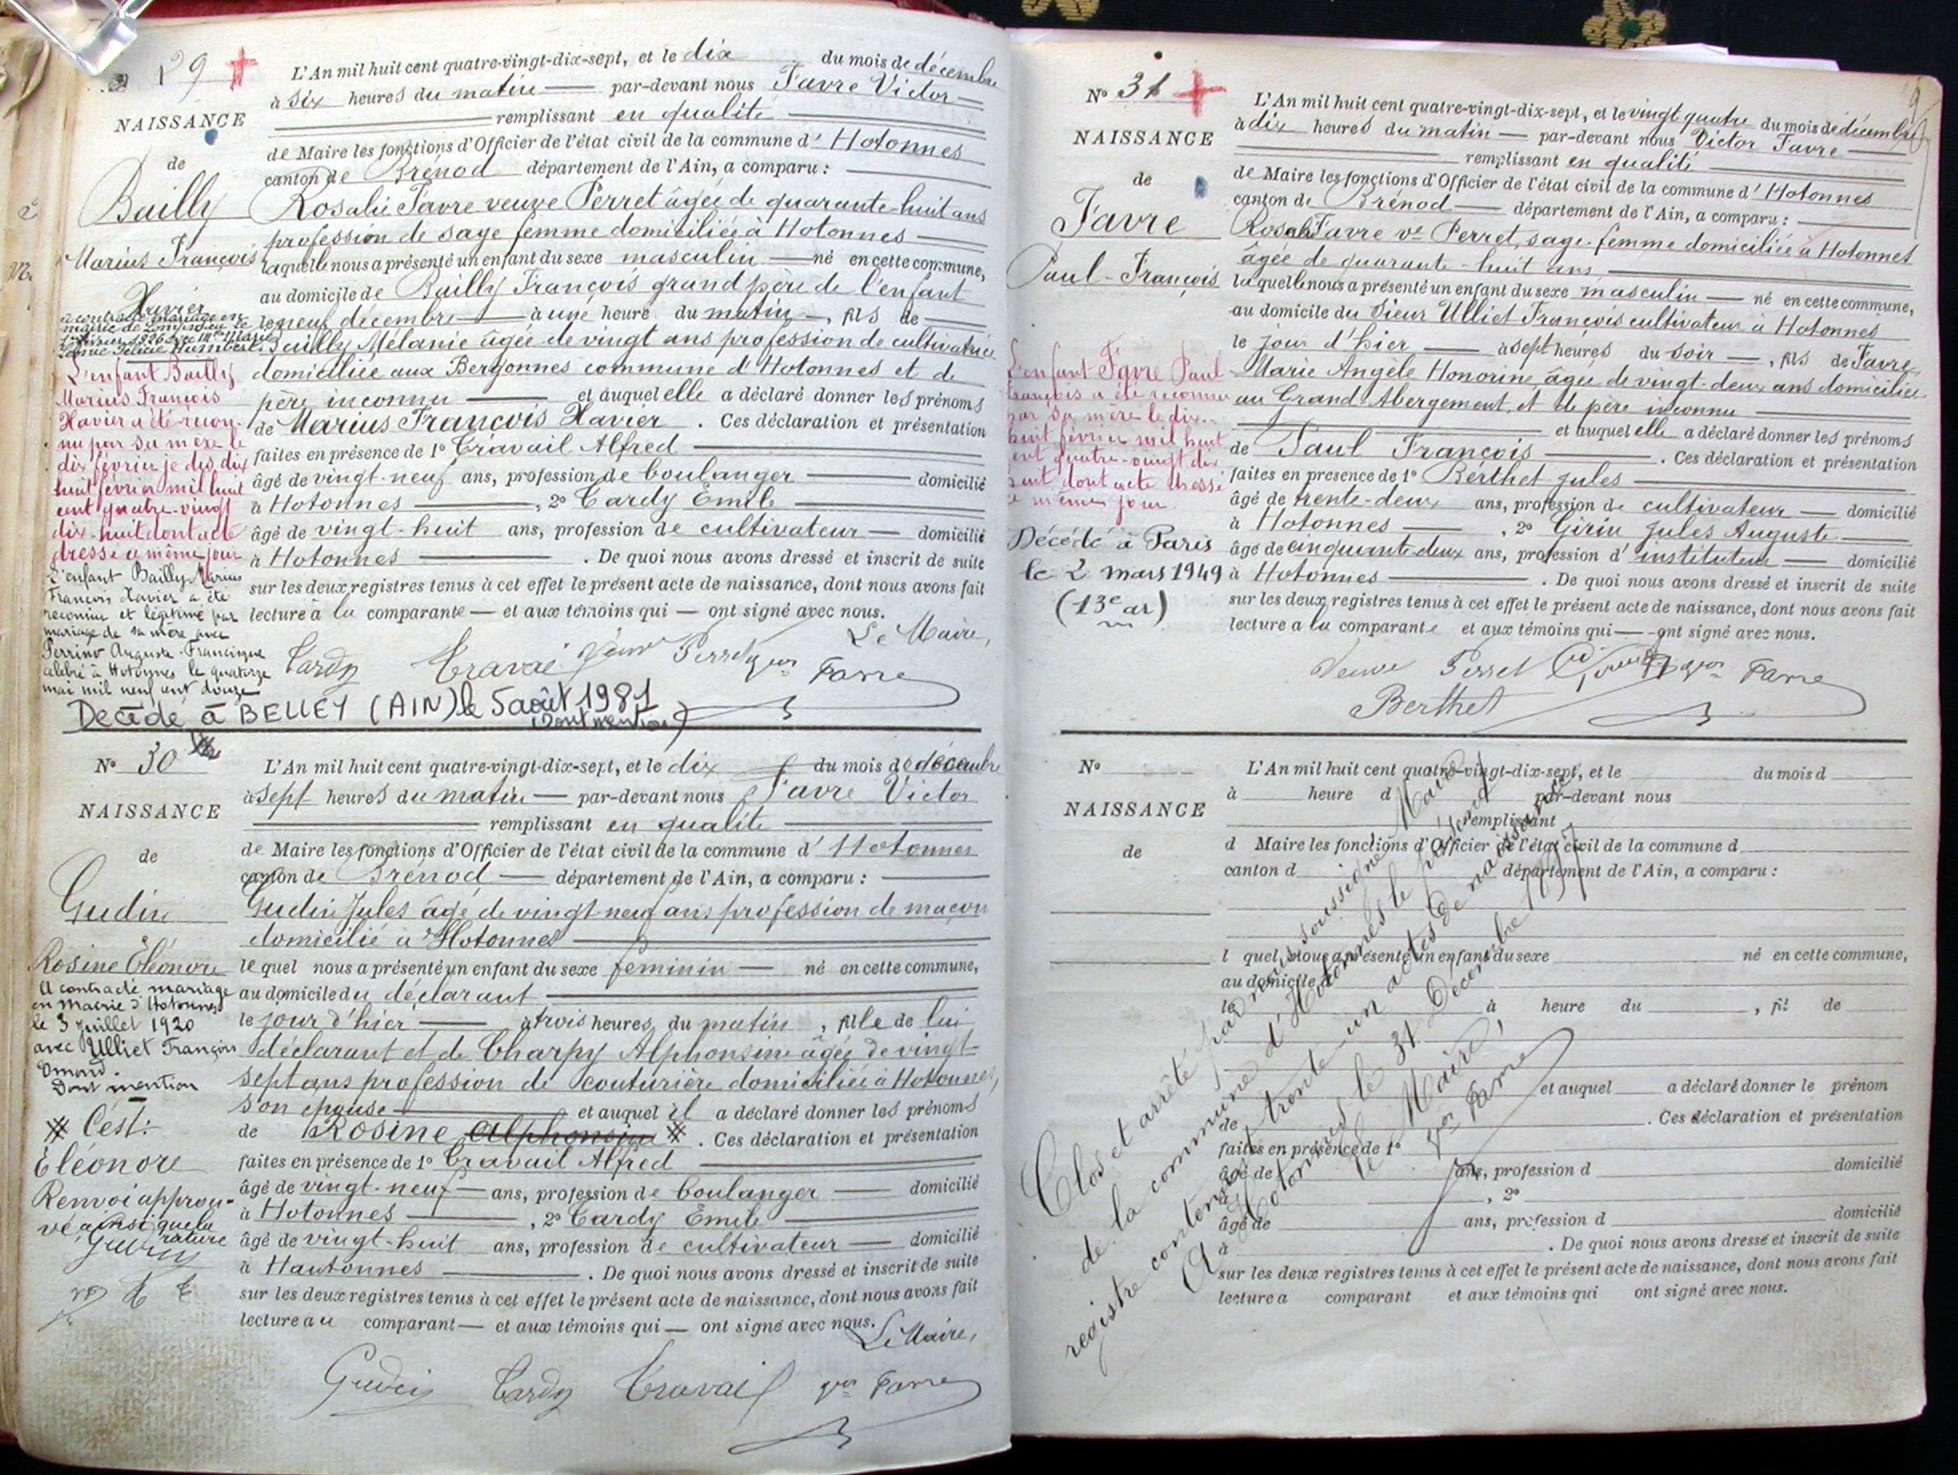 29
NAISSANCE
de
Bailly
Marius François
Xavier
a contracté mariage en
mairie de
L'enfant Bailly
Marius François
Xavier a été recon-
nu par sa mère le
dix février je dis dix
huit février mil huit
cent quatre-vingt
dix-huit dont acte
dressé ce même jour
L'enfant Bailly Marius
François Xavier a été
reconnu et légitimé par
mariage de sa mère avec
Perrino Auguste Francisque
célébré à Hotonnes le quatorze
mai mil neuf cent douze
L'An mil huit cent quatre-vingt-dix-sept, et le dix du mois de décembre
à six heures du matin — par-devant nous Favre Victor —
remplissant en qualité
de Maire les fonctions d'Officier de l'état civil de la commune d'Hotonnes
canton de Brénod département de l'Ain, a comparu :
Rosalie Favre veuve Perret âgée de quarante-huit ans
profession de sage femme domiciliée à Hotonnes —
laquelle nous a présenté un enfant du sexe masculin — né en cette commune,
au domicile de Bailly François grand père de l'enfant
le neuf décembre — à une heure du matin —, fils de —
Bailly Mélanie âgée de vingt ans profession de cultivatrice
domiciliée aux Bergonnes commune d'Hotonnes et de
père inconnu — et auquel elle a déclaré donner les prénoms
de Marius François Xavier . Ces déclaration et présentation
faites en présence de 1° Travail Alfred —
âgé de vingt-neuf ans, profession de boulanger — domicilié
à Hotonnes —, 2° Cardy Emile —
âgé de vingt-huit ans, profession de cultivateur — domicilié
à Hotonnes — . De quoi nous avons dressé et inscrit de suite
sur les deux registres tenus à cet effet le présent acte de naissance, dont nous avons fait
lecture à la comparante — et aux témoins qui — ont signé avec nous.
Le Maire,
Cardy Travail Veuve Perret Vor Favre
Décédé à BELLEY (AIN) le 5 août 1981
(Dont mention)
N° 30
NAISSANCE
de
Gudin
Rosine Eléonore
A contracté mariage
en Mairie d'Hotonnes
le 3 juillet 1920
avec Ulliet François
Dont mention
C'est:
Eléonore
Renvoi approu-
vé ainsi que la
rature
Gudin
L'An mil huit cent quatre-vingt-dix-sept, et le dix du mois de décembre
à sept heures du matin — par-devant nous Favre Victor
remplissant en qualité
de Maire les fonctions d'Officier de l'état civil de la commune d'Hotonnes
canton de Brénod — département de l'Ain, a comparu :
Gudin Jules âgé de vingt neuf ans profession de maçon
domicilié à Hotonnes
le quel nous a présenté un enfant du sexe féminin — né en cette commune,
au domicile du déclarant
le jour d'hier — à trois heures du matin , fille de lui
déclarant et de Charpy Alphonsine âgée de vingt-
sept ans profession de couturière domiciliée à Hotonnes,
son épouse — et auquel il a déclaré donner les prénoms
de Rosine Alphonsine . Ces déclaration et présentation
faites en présence de 1° Travail Alfred
âgé de vingt-neuf — ans, profession de boulanger — domicilié
à Hotonnes —, 2° Cardy Emile
âgé de vingt-huit ans, profession de cultivateur — domicilié
à Hautonnes — . De quoi nous avons dressé et inscrit de suite
sur les deux registres tenus à cet effet le présent acte de naissance, dont nous avons fait
lecture au comparant — et aux témoins qui — ont signé avec nous.
Le Maire,
Gudin Cardy Travail Vor Favre
N° 31
NAISSANCE
de
Favre
Paul-François
L'enfant Favre Paul
François a été reconnu
par sa mère le dix-
huit février mil huit
cent quatre-vingt dix
huit dont acte dressé
ce même jour
Décédé à Paris
le 2 mars 1949
(13e ar)
L'An mil huit cent quatre-vingt-dix-sept, et le vingt quatre du mois de décembre
à dix heures du matin — par-devant nous Victor Favre —
remplissant en qualité
de Maire les fonctions d'Officier de l'état civil de la commune d'Hotonnes
canton de Brénod — département de l'Ain, a comparu :
Rosalie Favre ve Perret, sage-femme domiciliée à Hotonnes
âgée de quarante-huit ans
laquelle nous a présenté un enfant du sexe masculin — né en cette commune,
au domicile du Sieur Ulliet François cultivateur à Hotonnes
le jour d'hier — à sept heures du soir —, fils de Favre
Marie Angèle Honorine âgée de vingt-deux ans domiciliée
au Grand-Abergement, et de père inconnu
et auquel elle a déclaré donner les prénoms
de Paul François — . Ces déclaration et présentation
faites en présence de 1° Berthet Jules
âgé de trente-deux ans, profession de cultivateur — domicilié
à Hotonnes —, 2° Girin Jules Auguste
âgé de cinquante-deux ans, profession d'instituteur — domicilié
à Hotonnes — . De quoi nous avons dressé et inscrit de suite
sur les deux registres tenus à cet effet le présent acte de naissance, dont nous avons fait
lecture a la comparante et aux témoins qui — ont signé avec nous.
Veuve Perret Girin Vor Favre
Berthet
N°
NAISSANCE
de
L'An mil huit cent quatre-vingt-dix-sept, et le du mois d
à heure d par-devant nous
remplissant
d Maire les fonctions d'Officier de l'état civil de la commune d
canton d département de l'Ain, a comparu :
l quel nous a présenté un enfant du sexe né en cette commune,
au domicile
le à heure du , fil de
et auquel a déclaré donner le prénom
de . Ces déclaration et présentation
faites en présence de 1°
âgé de ans, profession d domicilié
à , 2°
âgé de ans, profession d domicilié
à . De quoi nous avons dressé et inscrit de suite
sur les deux registres tenus à cet effet le présent acte de naissance, dont nous avons fait
lecture a comparant et aux témoins qui ont signé avec nous.
Clos et arrêté par nous soussigné Maire
de la commune d'Hotonnes le présent
registre contenant trente-un actes de naissance
A Hotonnes le 31 Décembre 1897
le Maire,
Vor Favre